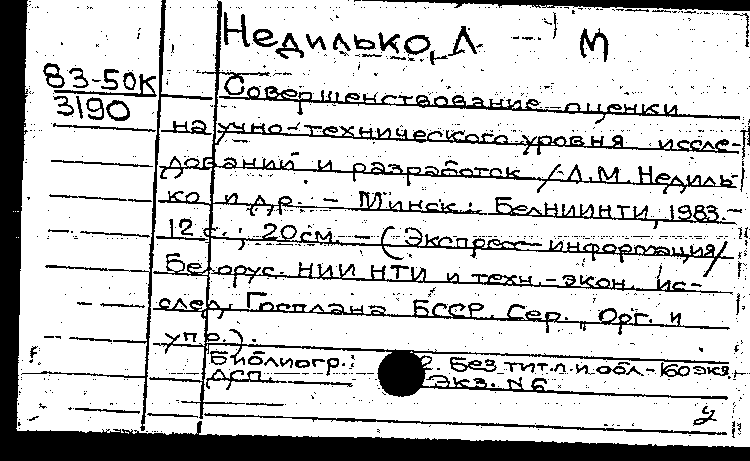 Недилько, Л М
83-50К
3190
Совершенствование оценки
научно-технического уровня иссле-
дований и разработок / Л.М. Недиль-
ко и др. - Минск: БелНИИНТИ, 1983.-
12 с.; 20см. - (Экспресс-информация/
Белорус. НИИ НТИ и техн.-экон. ис-
след. Госплана БССР. Сер., Орг. и
упр.).
Библиогр.: 2. Без тит.л. и обл. - 160 экз
ДСП. Экз. N6
У